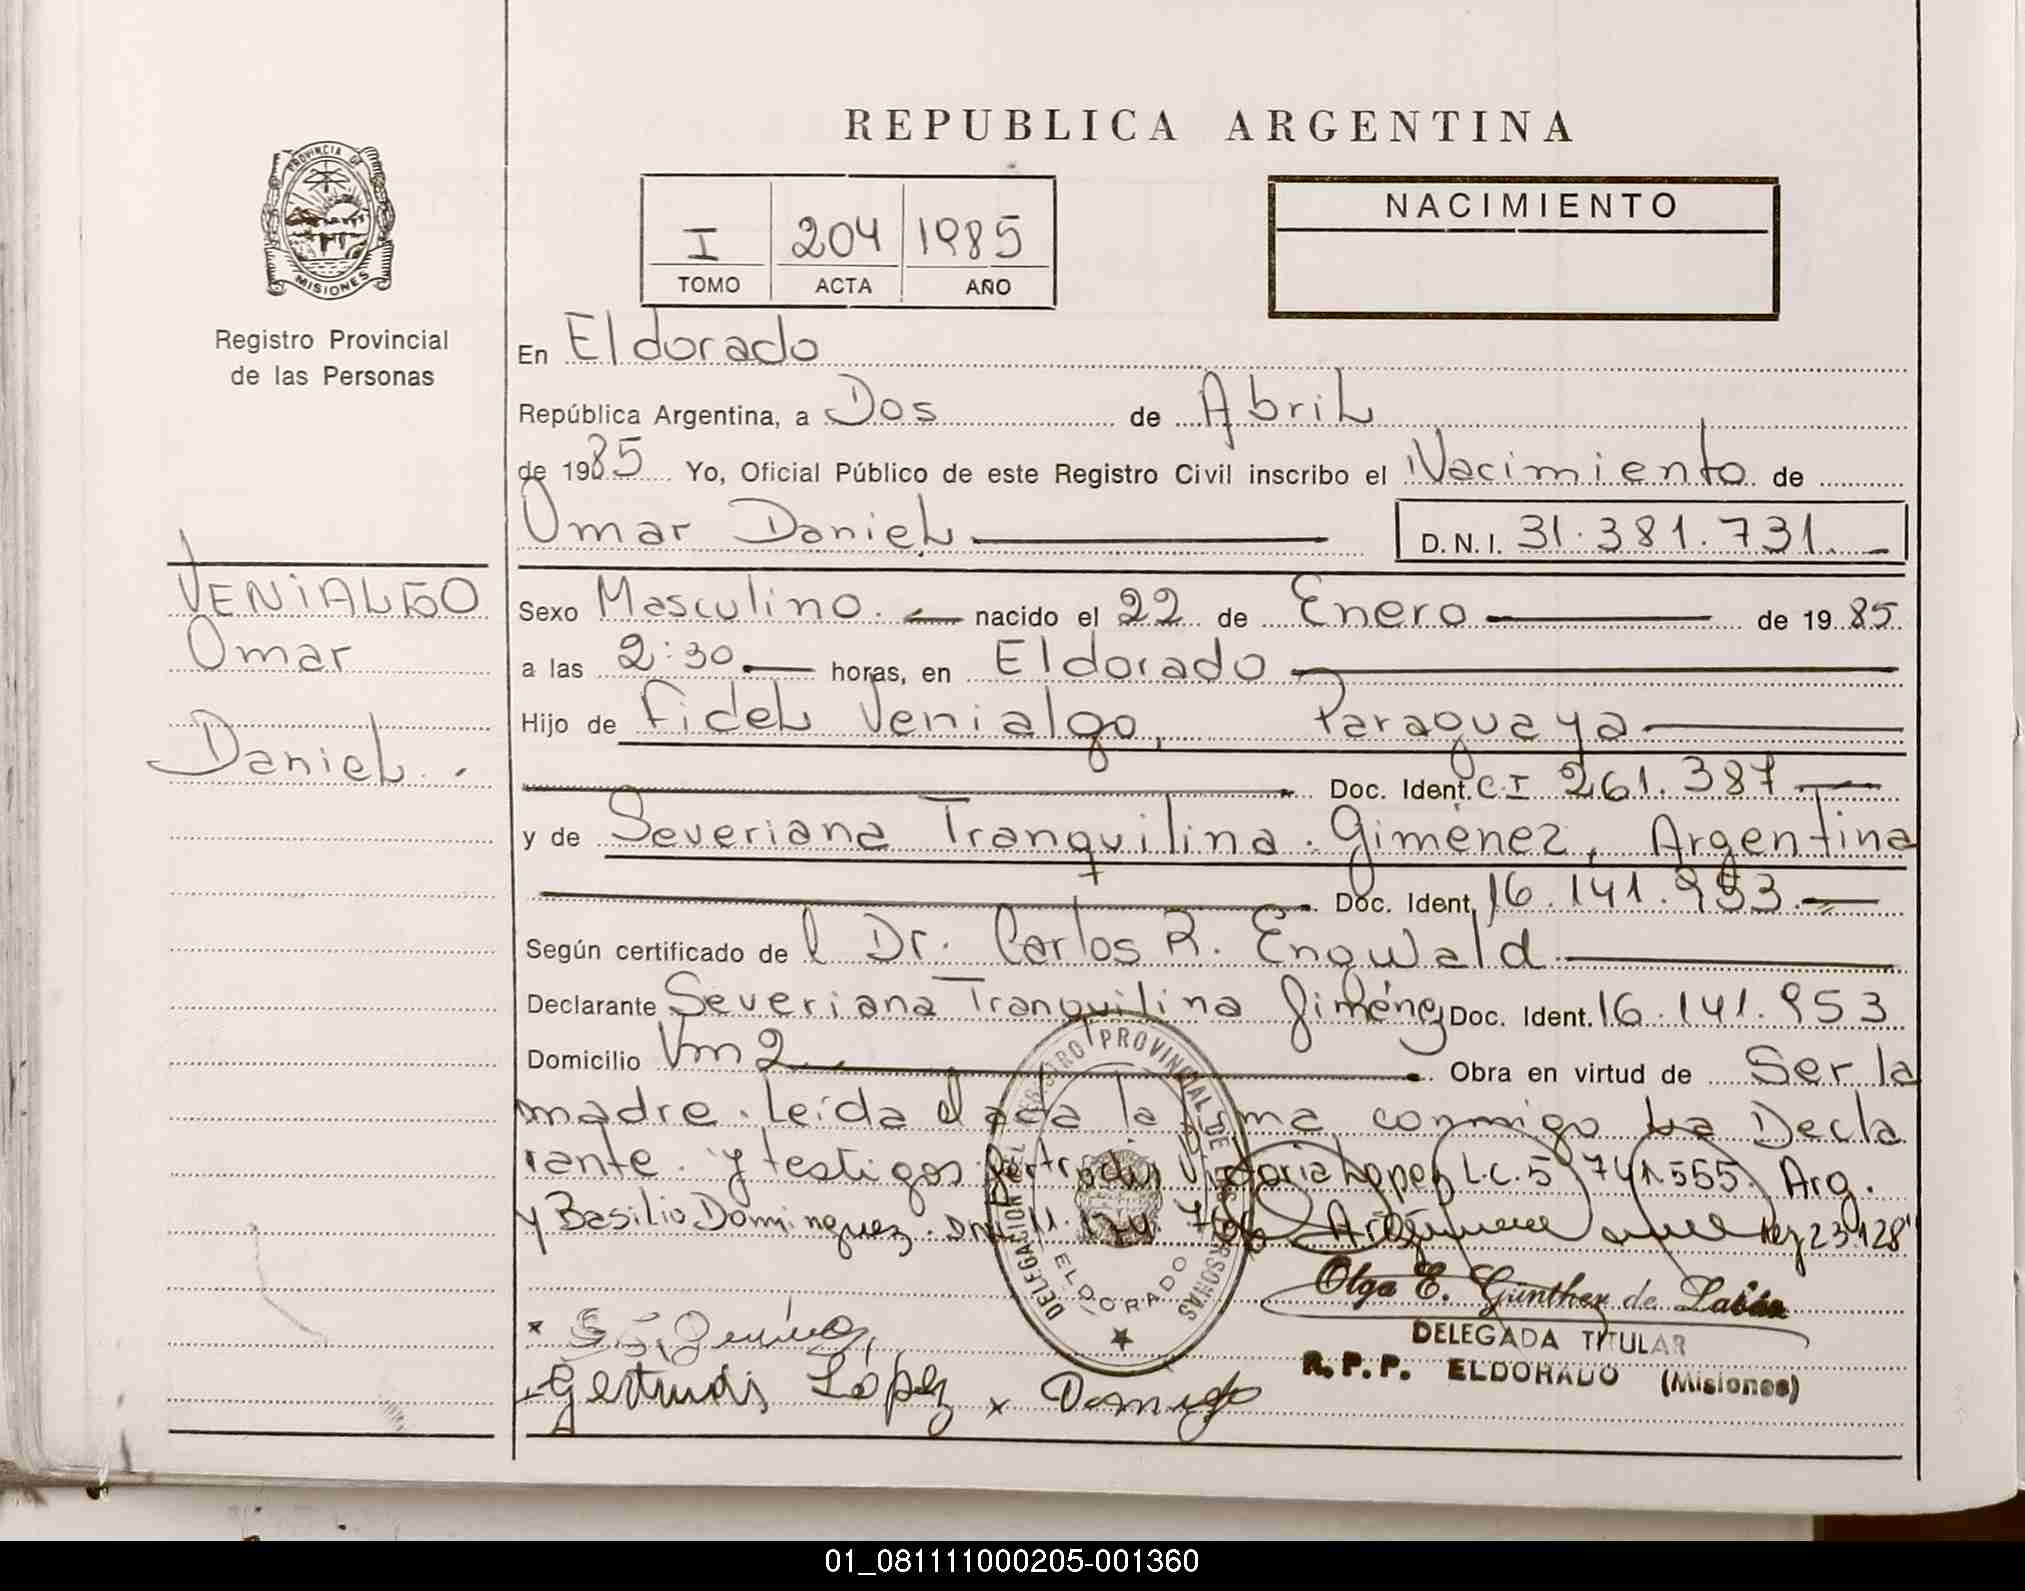 REPUBLICA ARGENTINA
PROVINCIA DE
MISIONES
Registro Provincial
de las Personas
I 204 1985
TOMO ACTA AÑO
NACIMIENTO
En Eldorado
República Argentina, a Dos de Abril
de 1985 Yo, Oficial Público de este Registro Civil inscribo el Nacimiento de
Omar Daniel D.N.I. 31.381.731.
VENIALGO
Omar
Daniel.
Sexo Masculino. nacido el 22 de Enero de 1985
a las 2:30 horas, en Eldorado
Hijo de Fidel Venialgo, Paraguaya
Doc. Ident. C.I 261.387
y de Severiana Tranquilina Giménez, Argentina
Doc. Ident. 16.141.953.
Según certificado de l Dr. Carlos R. Engwald
Declarante Severiana Tranquilina Giménez Doc. Ident. 16.141.953
Domicilio Km 2 Obra en virtud de Ser la
madre. Leída el acta la firma conmigo La Decla
rante. y testigos Gertrudis Victoria Lopez L.C. 5.741.555. Arg.
y Basilio Dominguez. DNI 11. Argentina Ley 23.128
REGISTRO PROVINCIAL DE LAS PERSONAS
DELEGACION DEL
ELDORADO
Olga E. Günther de
DELEGADA TITULAR
R.P.P. ELDORADO (Misiones)
x
Gertrudis López x
01_081111000205-001360